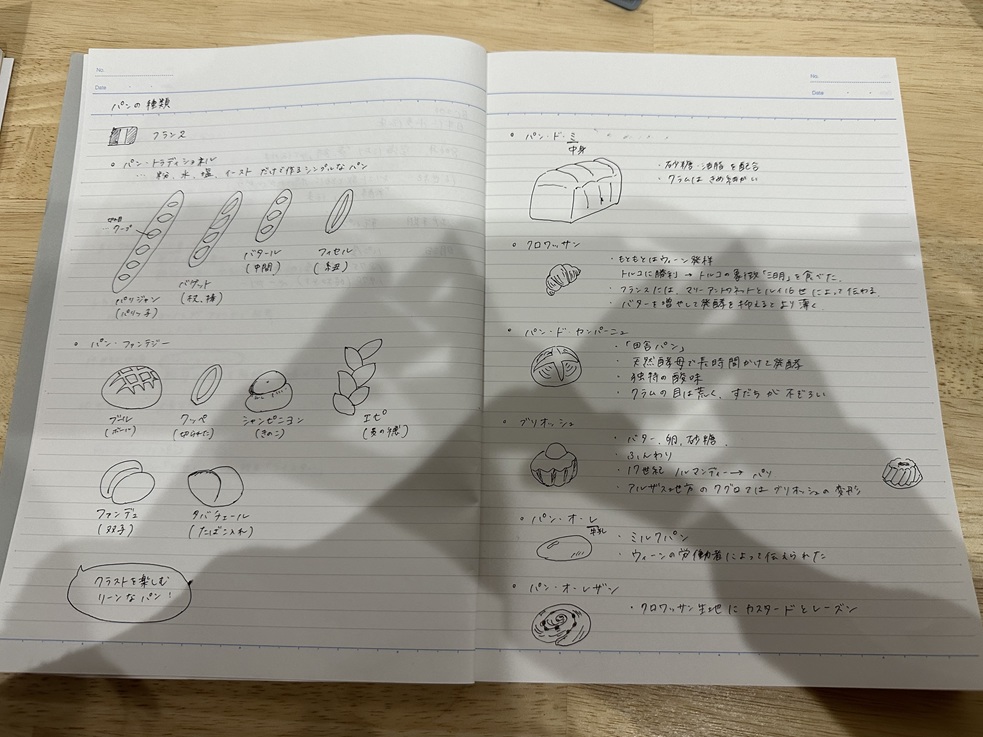 No.
Date
パンの種類
フランス
パン・トラディショネル
… 粉、水、塩、イースト だけで作るシンプルなパン
切れ目
クープ
パリジャン
(パリッ子)
バゲット
(杖、棒)
バタール
(中間)
フィセル
(紐)
パン・ファンテジー
ブール
(ボール)
クッペ
(切られた)
シャンピニヨン
(きのこ)
エピ
(麦の穂)
ファンデュ
(双子)
タバチェール
(たばこ入れ)
クラストを楽しむ
リーンなパン!
No.
Date
パン・ド・ミ
中身
・砂糖・油脂を配合
・クラムは きめ細かい
クロワッサン
・もともとはウィーン発祥
トルコに勝利 → トルコの象徴「三日月」を食べた
・フランスには、マリーアントワネットとルイ16世によって伝わる
・バターを増やして発酵を抑えるとより薄く
パン・ド・カンパーニュ
・「田舎パン」
・天然酵母で長時間かけて発酵
・独特の酸味
・クラムの目は荒く、すだちが不ぞろい
ブリオッシュ
・バター、卵、砂糖、
・ふんわり
・17世紀 ノルマンディー → パリ
・アルザス地方のクグロフはブリオッシュの変形
パン・オ・レ
牛乳
・ミルクパン
・ウィーンの労働者によって伝えられた
パン・オ・レザン
・クロワッサン生地に カスタードとレーズン